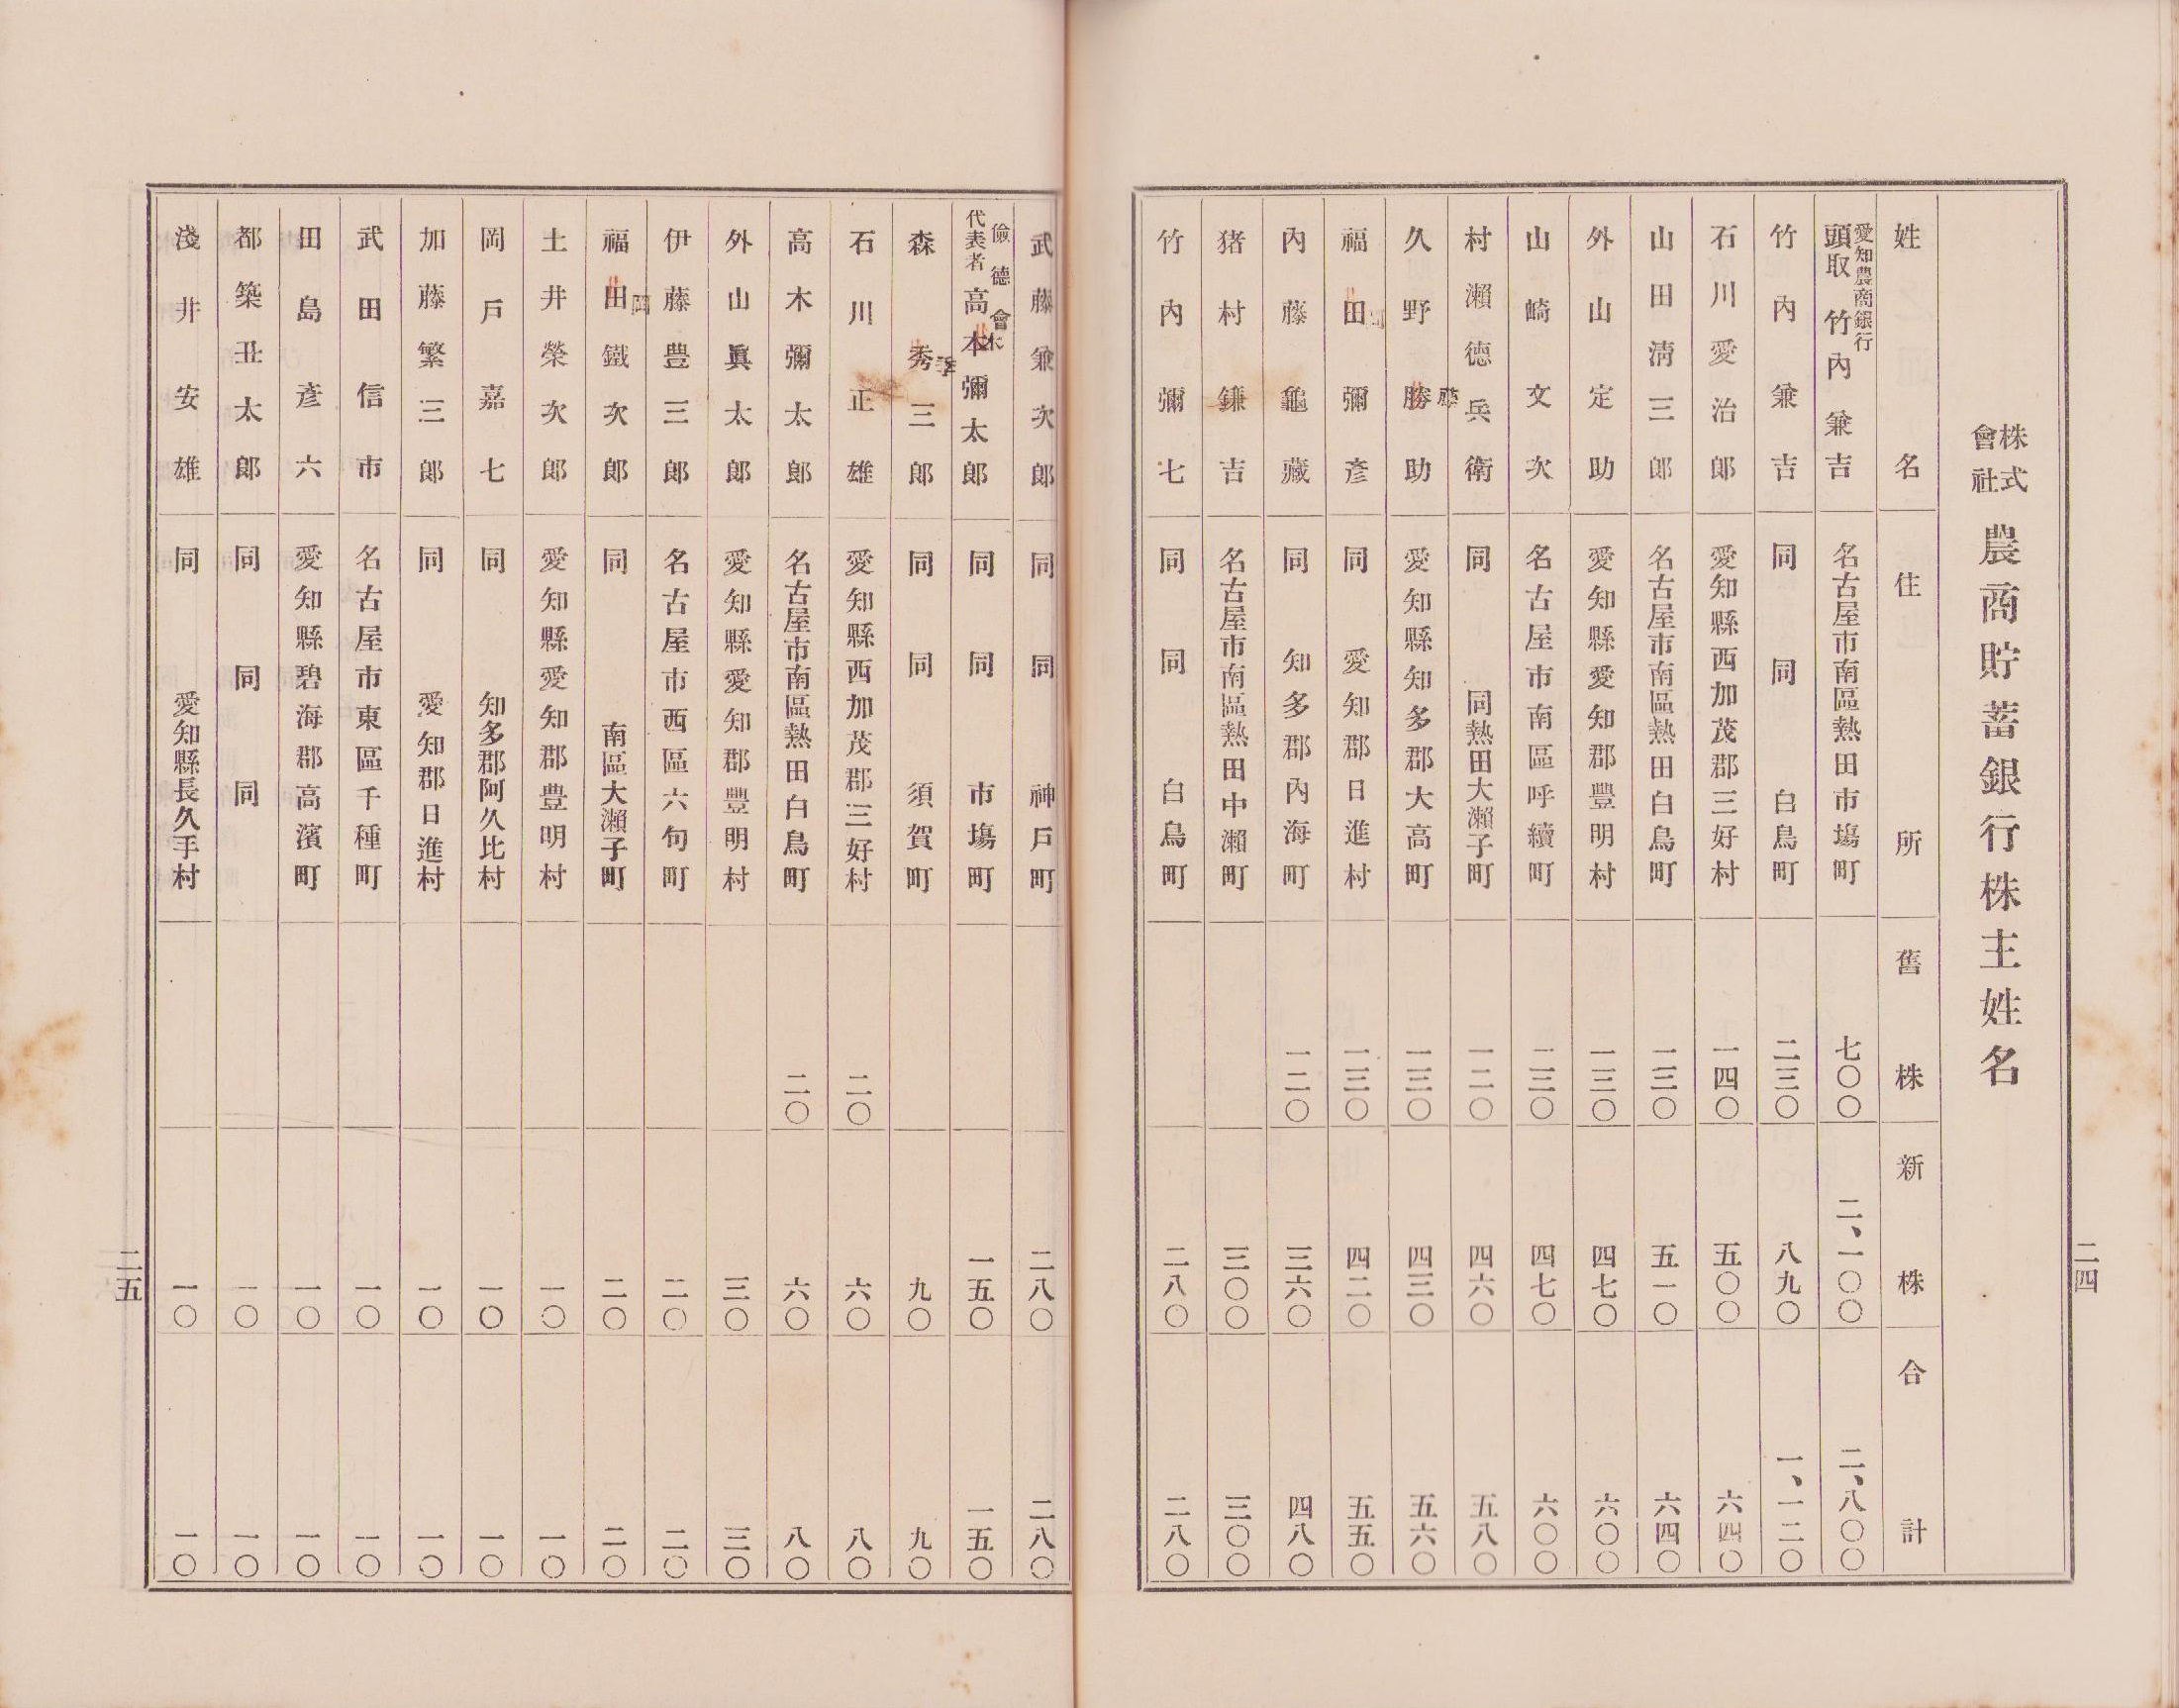 二四
株式會社 農商貯蓄銀行株主姓名
姓名 住所 舊株 新株 合計
愛知農商銀行頭取 竹內兼吉 名古屋市南區熱田市場町 七〇〇 二、一〇〇 二、八〇〇
竹內兼吉 同 同 白鳥町 二三〇 八九〇 一、一二〇
石川愛治郎 愛知縣西加茂郡三好村 一四〇 五〇〇 六四〇
山田淸三郎 名古屋市南區熱田白鳥町 一三〇 五一〇 六四〇
外山定助 愛知縣愛知郡豐明村 一三〇 四七〇 六〇〇
山崎文次 名古屋市南區呼續町 一三〇 四七〇 六〇〇
村瀨德兵衛 同 同熱田大瀨子町 一二〇 四六〇 五八〇
久野勝助 藤 愛知縣知多郡大高町 一三〇 四三〇 五六〇
福田彌彥 同 愛知郡日進村 一三〇 四二〇 五五〇
內藤龜藏 同 知多郡內海町 一二〇 三六〇 四八〇
猪村鎌吉 名古屋市南區熱田中瀨町 三〇〇 三〇〇
竹內彌七 同 同 白鳥町 二八〇 二八〇
武藤兼次郎 同 同 神戶町 二八〇 二八〇
儉德會代表者 高本彌太郎 木 同 同 市塲町 一五〇 一五〇
森秀三郎 同 同 須賀町 九〇 九〇
石川正雄 愛知縣西加茂郡三好村 二〇 六〇 八〇
高木彌太郎 名古屋市南區熱田白鳥町 二〇 六〇 八〇
外山眞太郎 愛知縣愛知郡豐明村 三〇 三〇
伊藤豊三郎 名古屋市西區六句町 二〇 二〇
福田鐵次郎 岡 同 南區大瀨子町 二〇 二〇
土井榮次郎 愛知縣愛知郡豊明村 一〇 一〇
岡戶嘉七 同 知多郡阿久比村 一〇 一〇
加藤繁三郎 同 愛知郡日進村 一〇 一〇
武田信市 名古屋市東區千種町 一〇 一〇
田島彥六 愛知縣碧海郡高濱町 一〇 一〇
都築丑太郎 同 同 同 一〇 一〇
淺井安雄 同 愛知縣長久手村 一〇 一〇
二五